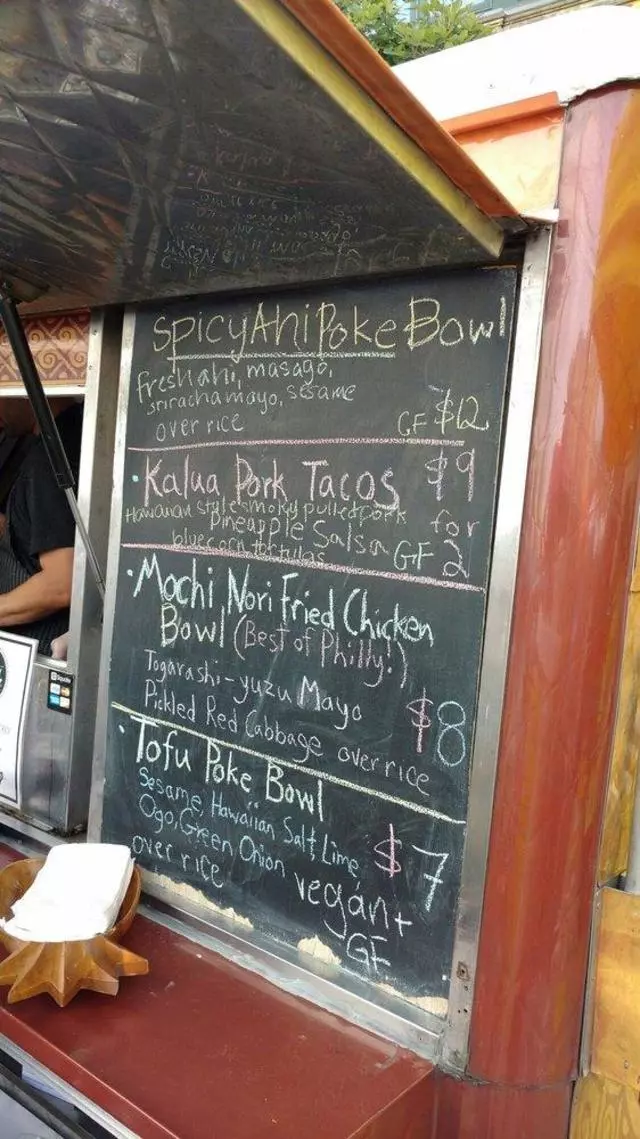 SpicyAhiPoke Bowl
fresh ahi, masago,
sriracha mayo, sesame
over rice
GF $12
· Kalua Pork Tacos $9
Hawaiian style smoky pulled pork for
Pineapple Salsa GF 2
blue corn tortillas
· Mochi Nori Fried Chicken
Bowl (Best of Philly!)
Togarashi-yuzu Mayo
Pickled Red Cabbage over rice
$8
· Tofu Poke Bowl
Sesame, Hawaiian Salt, Lime,
Ogo, Green Onion
over rice
$7
vegan +
GF
Square